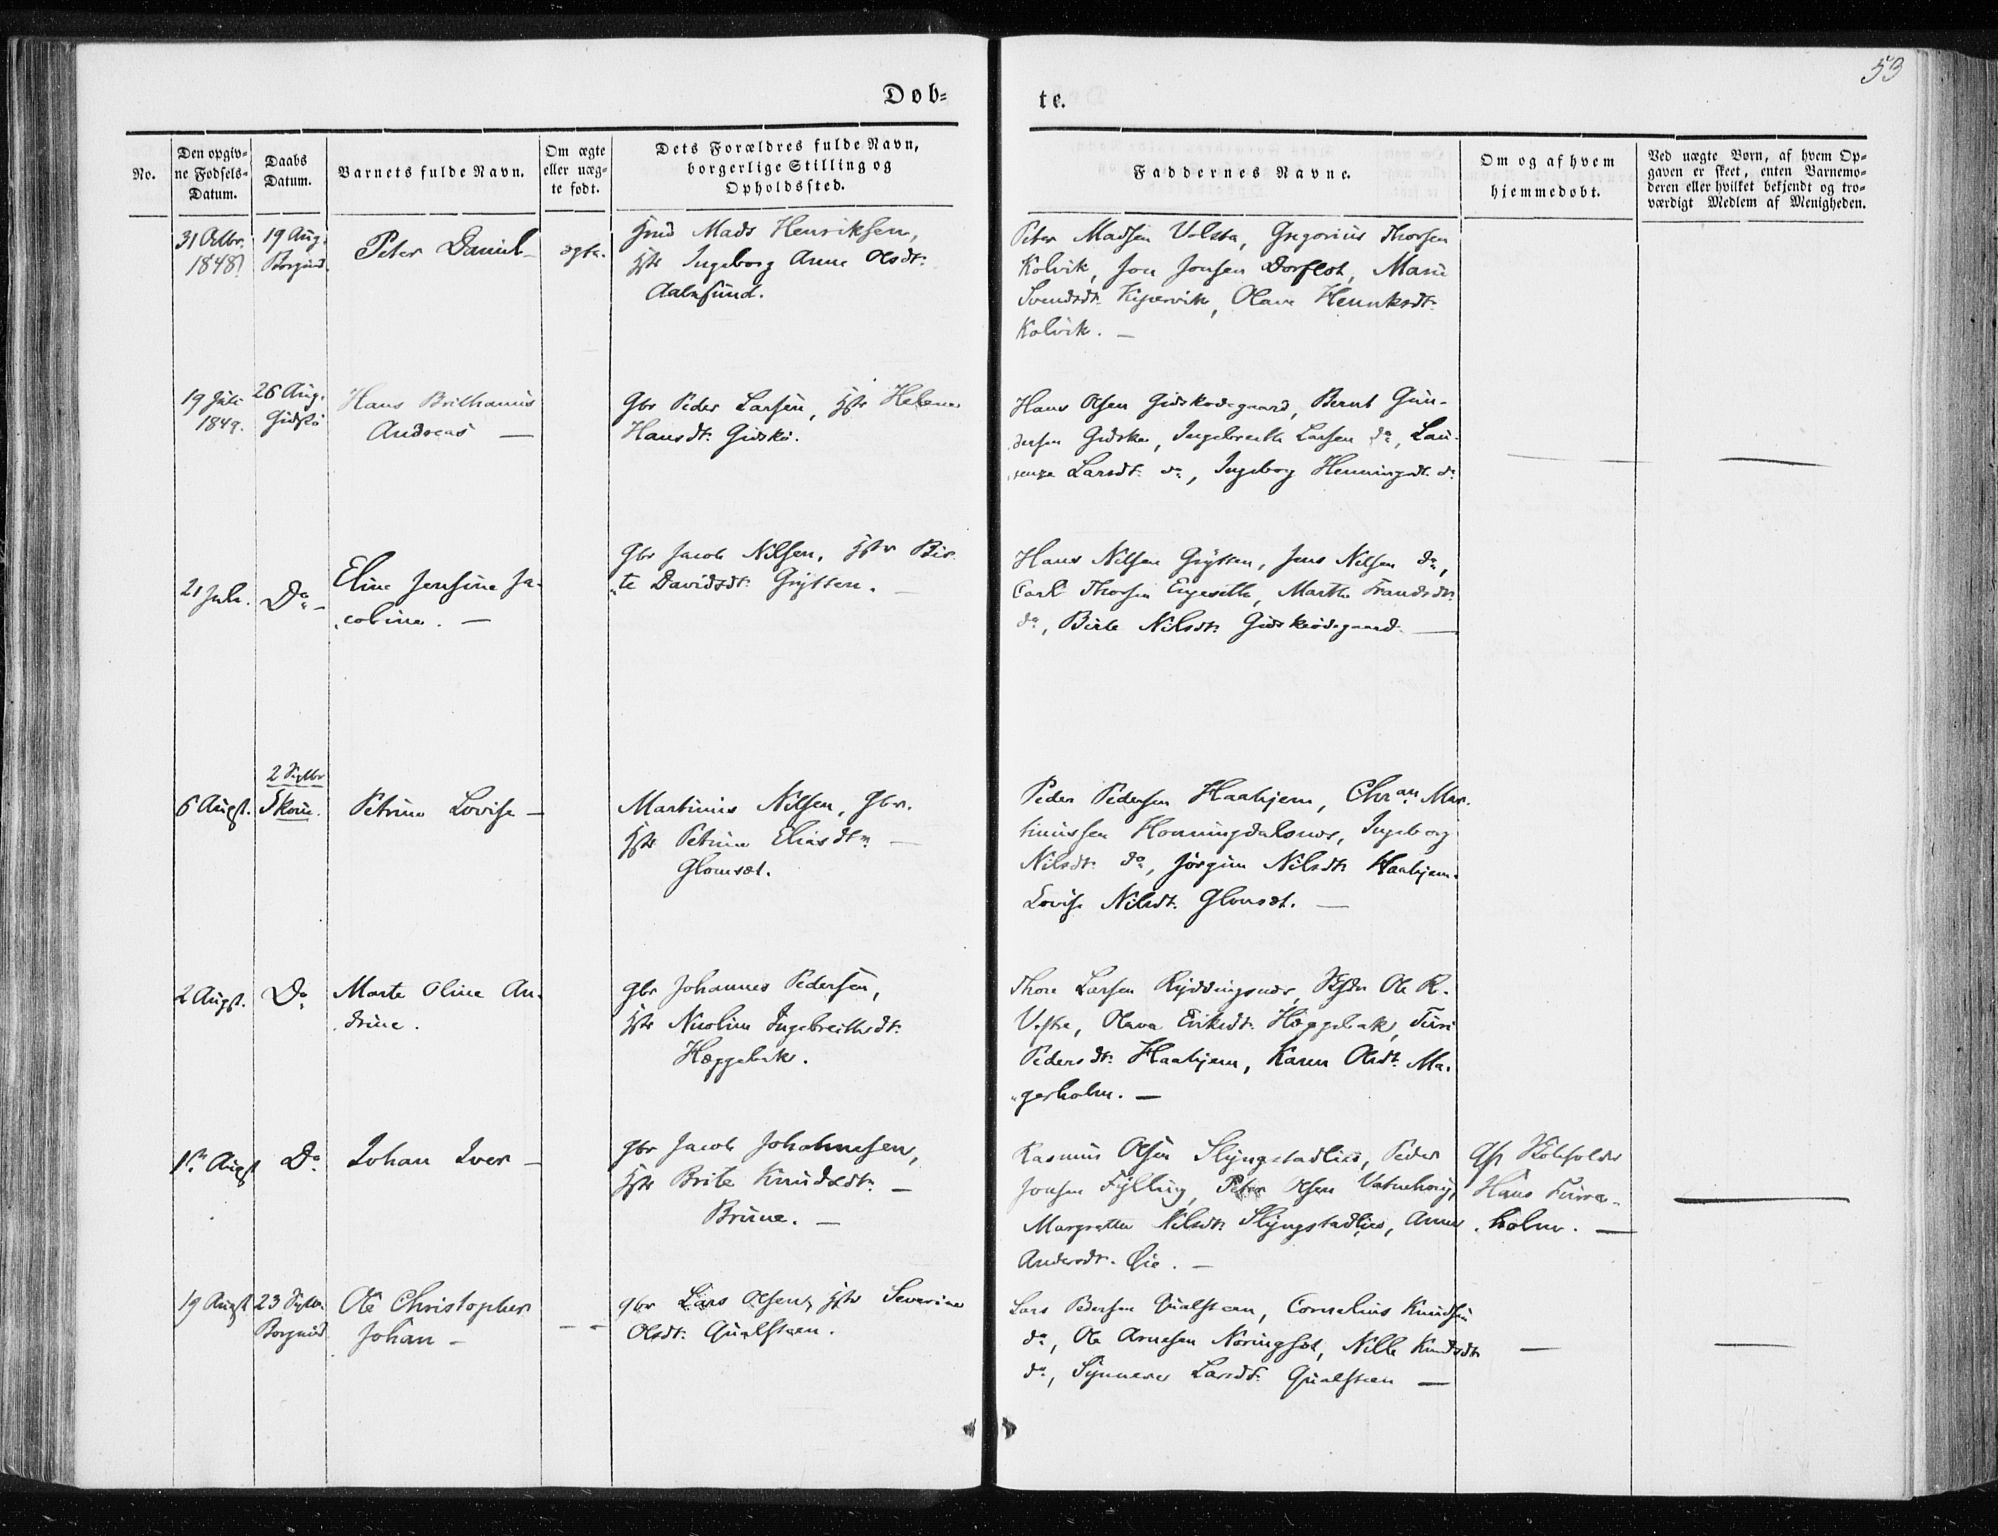 53
Døb-
te.
No.
Den opgiv-
ne Fødsels-
Datum.
Daabs
Datum.
Barnets fulde Navn.
Om ægte
eller uæg-
te født.
Dets Forældres fulde Navn,
borgerlige Stilling og
Opholdssted.
Faddernes Navne.
Om og af hvem
hjemmedøbt.
Ved uægte Børn, af hvem Op-
gaven er skeet, enten Barnemo-
deren eller hvilket bekjendt og tro-
værdigt Medlem af Menigheden.
31 Octbr.
1848
19 Aug.
Borgund
Peter Daniel
ægte.
Mads Henriksen,
Hstr Ingeborg Anne Olsdt:
Aalesund.
Peter Madsen Volsta, Gregorius Thorsen
Kolvik, Jon Jonsen Dorflot, Marie
Svendsdt: Kipervik, Olave Henriksdt:
Kolvik. —
19 Juli
1849.
26 Aug.
Gidskø
Hans Brithanius
Andreas —
Gbr Peder Larsen, Hstr Helene
Hansdt: Gidskø.
Hans Olsen Gidskødegaard, Bernt Gun-
dersen Gidske, Ingebreth Larsen do, Lau-
Larsdt: do, Ingeborg Henningsdt: do
21 Juli.
Do —
Eline Jensine Ja-
cobine. —
Gbr Jacob Nilsen, Hstr Bir-
te Davidsdt: Grytten. —
Hans Nilsen Grytten, Jens Nilsen do,
Carl Thorsen Engeseth, Marthe Frandsdt:
do, Birte Nilsdt: Gidskeødegaard —
6 Augst.
2 Septbr
Skoue.
Petrine Lovise —
Martinus Nilsen, Gbr.
Hstr Petrine Eliasdtr —
Glomsæt.
Peder Pedersen Haahjem, Chr.an Mar-
tinussen Honningdalsnes, Ingeborg
Nilsdt: do, Jørgine Nilsdt: Haahjem.
Lovise Nilsdt: Glomsæt. —
2 Augst.
Do
Marte Oline An-
drine.
Gbr Johannes Pedersen,
Hstr Nicoline Ingebreithsdt:
Hæggebak.
Thore Larsen Ryddingsnes, Ole R.
Olava Eriksdt: Hæggebak, Turi
Pedersdt: Haahjem, Karen Olsdt: Ma-
gerholm. —
1ste Augst
Do
Johan Iver —
Gbr Jacob Johannesen,
Hstr Brite Knudsdt: —
Brune. —
Rasmus Olsen Slyngstadlied, Peder
Jonsen Fylling, Peter Olsen Vatnehoug,
Margrethe Nilsdt: Slyngstadlied, Anne
Andersdt: Øie. —
af Skoleholder
Hans Furre-
holm. —
19 Augst
23 Septbr.
Borgund
Ole Christopher
Johan —
— —
Gbr Lars Olsen, Hstr Severine
Olsdt: Qualsteen.
Lars Pedersen Qualsteen, Cornelius Knudsen
do, Ole Arnesen Nøringset, Nille Knudsdt:
do, Synneve Larsdt: Qualsteen —